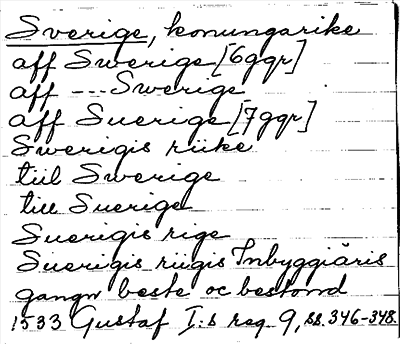 Sverige, konungarike
aff Swerige [6ggr]
aff --- Swerige
aff Suerige [7ggr]
Swerigis riike
tiil Swerige
till Suerige
Suerigis rige
Suerigis riigis Inbyggiäris
gangn beste oc bestond
1533 Gustaf I:s reg. 9, ss. 346-348.